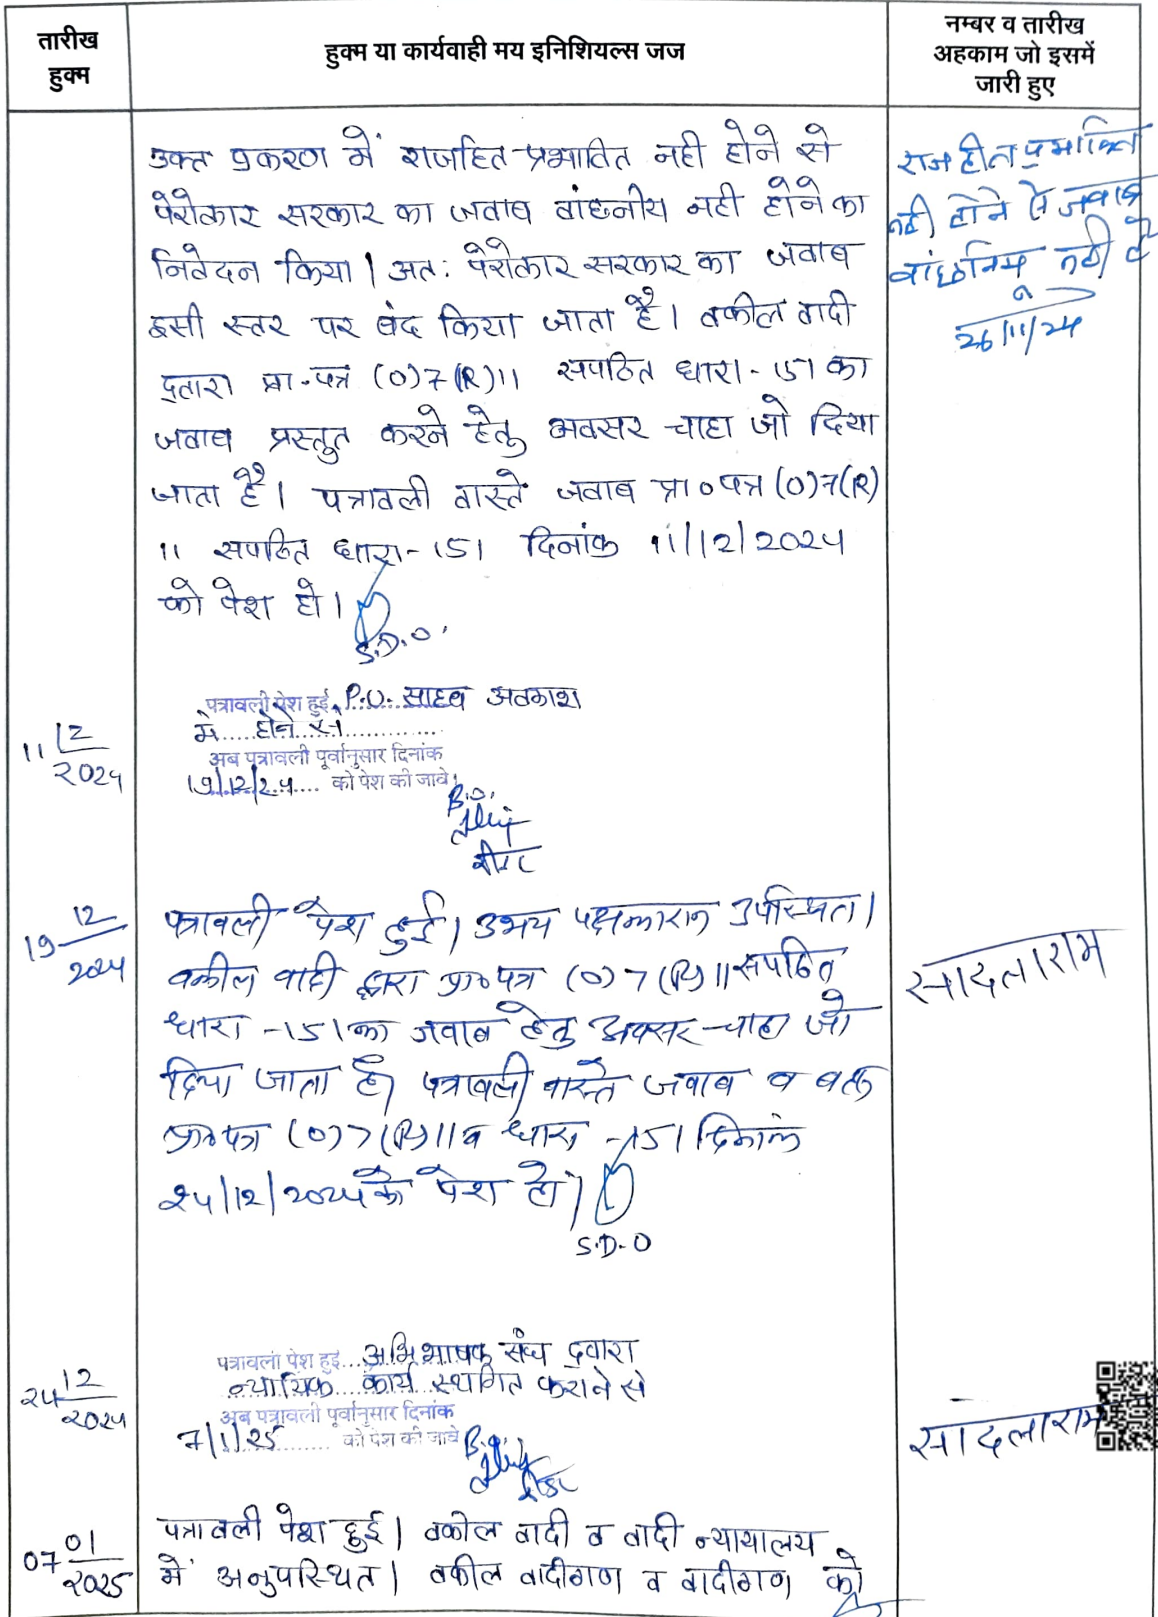 तारीख
हुक्म
हुक्म या कार्यवाही मय इनिशियल्स जज
नम्बर व तारीख
अहकाम जो इसमें
जारी हुए
उक्त प्रकरण में राजहित प्रभावित नही होने से
पेरोकार सरकार का जवाब वांछनीय नही होने का
निवेदन किया। अतः पेरोकार सरकार का जवाब
इसी स्तर पर बंद किया जाता है। वकील वादी
द्वारा प्रा.पत्र (0)7(R)11 सपठित धारा-151 का
जवाब प्रस्तुत करने हेतु अवसर चाहा जो दिया
जाता है। पत्रावली वास्ते जवाब प्रा०पत्र (0)7(R)
11 सपठित धारा-151 दिनांक 11/12/2024
को पेश हो।
S.D.O.
राजहीत प्रभावित
नही होने से जवाब
वांछनिय नही है
26/11/24
11 12
2024
पत्रावली पेश हुई. P.O. साहब अवकाश
में होने से
अब पत्रावली पूर्वानुसार दिनांक
19/12/24 को पेश की जावे।
B.O.
रीडर
19 12
2024
पत्रावली पेश हुई। उभय पक्षकारान उपस्थित।
वकील वादी द्वारा प्रा०पत्र (0)7(R)11 सपठित
धारा-151 का जवाब हेतु अवसर चाहा जो
दिया जाता है। पत्रावली वास्ते जवाब व बहस
प्रा०पत्र (0)7(R)11 व धारा-151 दिनांक
24/12/2024 को पेश हो।
S.D.O
सादलाराम
24 12
2024
पत्रावली पेश हुई... अभिभाषक संघ द्वारा
न्यायिक कार्य स्थगित कराने से
अब पत्रावली पूर्वानुसार दिनांक
7/1/25 को पेश की जावे
B.O.
रीडर
सादलाराम
07 01
2025
पत्रावली पेश हुई। वकील वादी व वादी न्यायालय
में अनुपस्थित। वकील वादीगण व वादीगण को